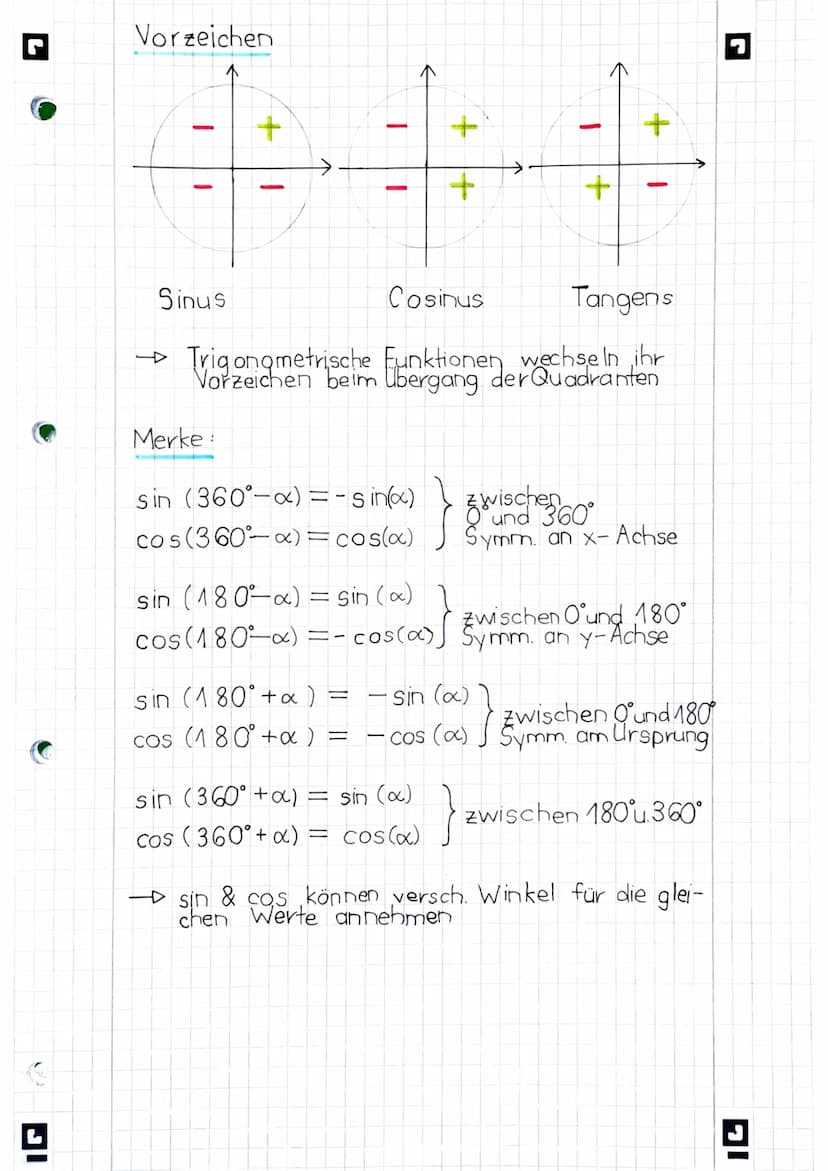 Vorzeichen
- + - + - +
- - - + + -
Sinus Cosinus Tangens
→ Trigonometrische Funktionen wechseln ihr
Vorzeichen beim Übergang der Quadranten
Merke:
sin (360°-α) = -sin(α)
cos(360°-α) = cos(α)
} zwischen
0° und 360°
Symm. an x-Achse
sin (180°-α) = sin (α)
cos(180°-α) = - cos(α)
} zwischen 0° und 180°
Symm. an y-Achse
sin (180° + α ) = - sin (α)
cos (180° + α ) = - cos (α)
} zwischen 0° und 180°
Symm. am Ursprung
sin (360° + α) = sin (α)
cos (360° + α) = cos(α)
} zwischen 180° u. 360°
→ sin & cos können versch. Winkel für die glei-
chen Werte annehmen